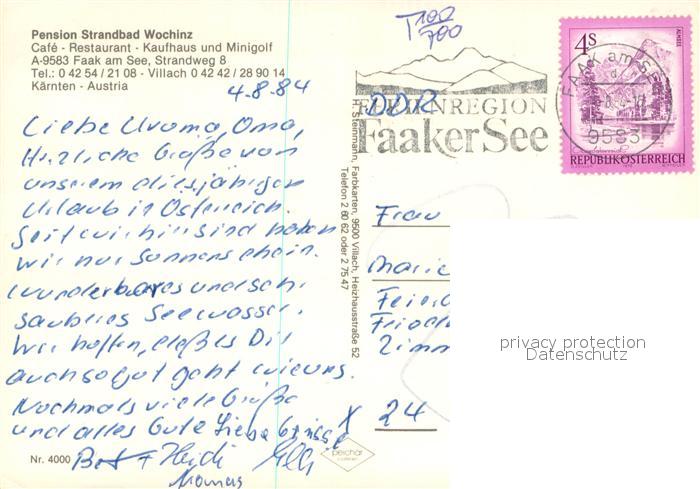 Pension Strandbad Wochinz
Café - Restaurant - Kaufhaus und Minigolf
A-9583 Faak am See, Strandweg 8
Tel.: 0 42 54 / 21 08 - Villach 0 42 42 / 28 90 14
Kärnten - Austria
4.8.84
Liebe Uroma, Oma,
Herzliche Grüße von
unserem diesjährigen
Urlaub in Österreich.
Seit wir hier sind haben
wir nur Sonnenschein.
wunderbares und sehr
sauberes Seewasser.
Wir hoffen, daß es Dir
auch so gut geht wie uns.
Nochmals viele Grüße
und alles Gute Liebe Grüsse
+ Heidi Elli
Thomas
Nr. 4000
H. Steinmann, Farbkarten, 9500 Villach, Heizhausstraße 52
Telefon 2 60 62 oder 2 75 47
T 100/700
DDR
FERIENREGION
Faaker See
4S
ALMSEE
REPUBLIK ÖSTERREICH
FAAK am SEE
9583
Frau
Marie
Feier
Fried
Zimm
24
privacy protection
Datenschutz